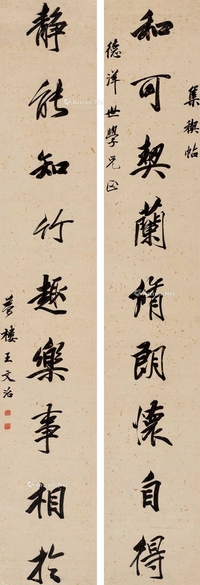 集禊帖
和可契蘭脩朗懷自得
德洋世學兄正
静能知竹趣樂事相於
夢樓王文治